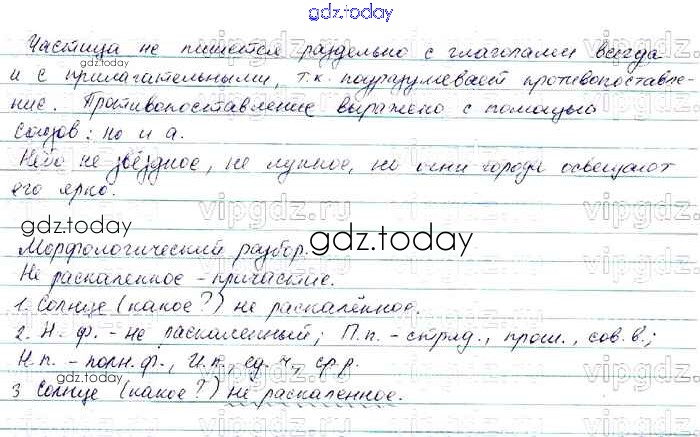 gdz.today
Частица не пишется раздельно с глаголами всегда
и с прилагательными, т.к. подразумевает противопоставле-
ние. Противопоставление выражено с помощью
союзов: но и а.
Небо не звёздное, не лунное, но огни города освещают
его ярко.
gdz.today
gdz.today
Морфологический разбор.
Не раскаленное - причастие.
1. Солнце (какое?) не раскалённое.
2. Н. ф. - не раскаленный; П.п. - страд., прош., сов. в.;
Н.п. - полн. ф., И.п., ед. ч., ср. р.
gdz.today
gdz.today
3 Солнце (какое?) не раскаленное.
vipgdz.ru